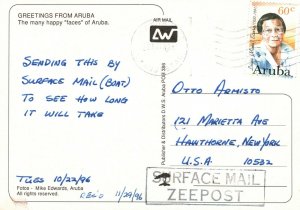 GREETINGS FROM ARUBA
The many happy "faces" of Aruba.
AIR MAIL
60c
Aruba
SENDING THIS BY
SURFACE MAIL (BOAT)
TO SEE HOW LONG
IT WILL TAKE
TUES 10/22/96
Fotos - Mike Edwards, Aruba
All rights reserved.
REC'D 11/29/96
Publisher & Distributors D.W.S. Aruba
OTTO ARMISTO
121 MARIETTA AVE
HAWTHORNE, NEW YORK
U.S.A. 10532
SURFACE MAIL
ZEEPOST